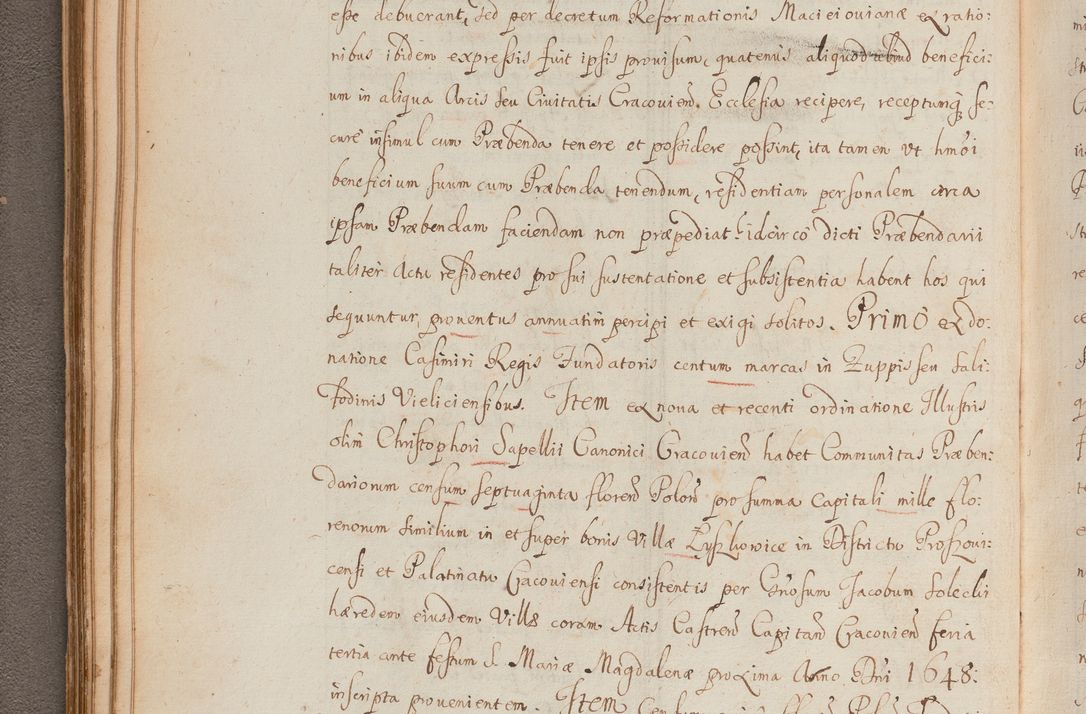 esse debuerant, sed per decretum Reformationis Macieiovianæ ex ratio:
nibus ibidem expressis fuit ipsis provisum, quatenus aliquod benefici:
um in aliqua Arcis seu Civitatis Cracovien̄. Ecclesia recipere, receptumq; se:
cure insimul cum Præbenda tenere et possidere possint, ita tamen vt hmōi
beneficium suum cum Præbenda tenendum, residentiam personalem circa
ipsam Præbendam faciendam non præpediat: idcircò dicti Præbendarii
taliter Actu residentes pro sui sustentatione et subsistentia habent hos qui
sequuntur, proventus annuatim percipi et exigi solitos. Primò ex do:
natione Casimiri Regis Fundatoris centum marcas in Zuppis seu sali:
fodinis Vieliciensibus. Item ex nova et recenti ordinatione Illustris
olim Christophori Sapellii Canonici Cracovien̄ habet Communitas Præben:
dariorum censum septuaginta floren̄ Polon̄ pro summa capitali mille flo:
renorum similium in et super bonis Villæ in Districtu Proszovi:
censi et Palatinatu Cracoviensi consistentis per Gnosum Jacobum Solecki
hæredem eiusdem Villæ coram Actis Castren̄ Capitan̄ Cracovien̄ feria
tertia ante festum S. Mariæ Magdalenæ proxima Anno Dni 1648:
inscripta provenientem. Item